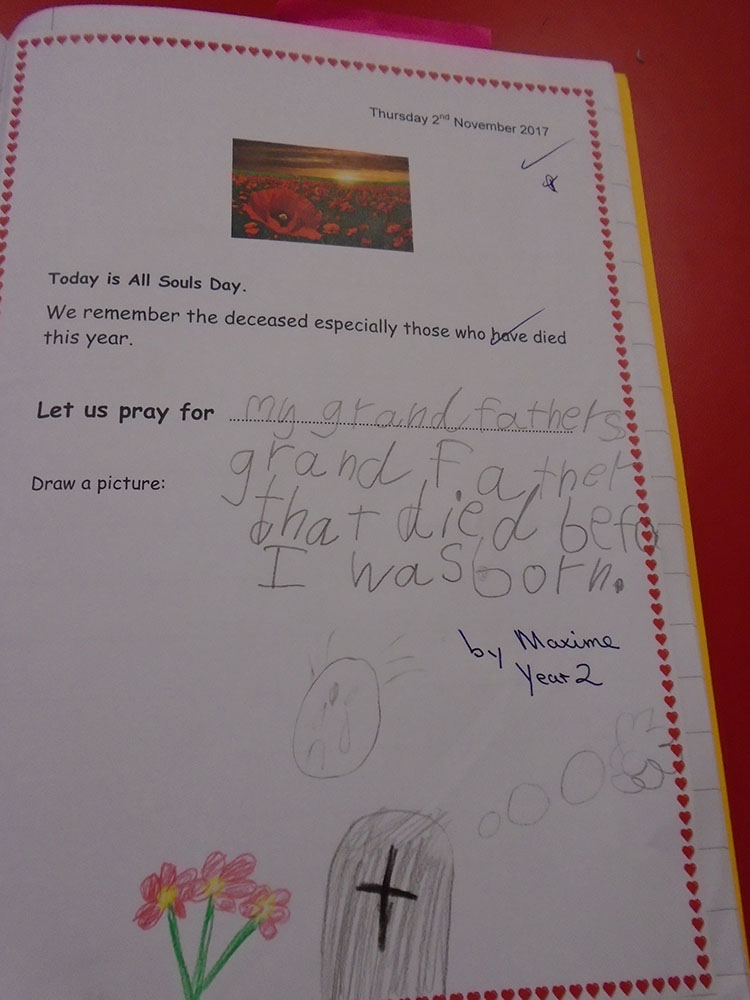 Thursday 2nd November 2017
Today is All Souls Day.
We remember the deceased especially those who have died
this year.
Let us pray for my grand fathers
grand Father
Draw a picture:
that died befo
I was born.
by Maxime
Year 2